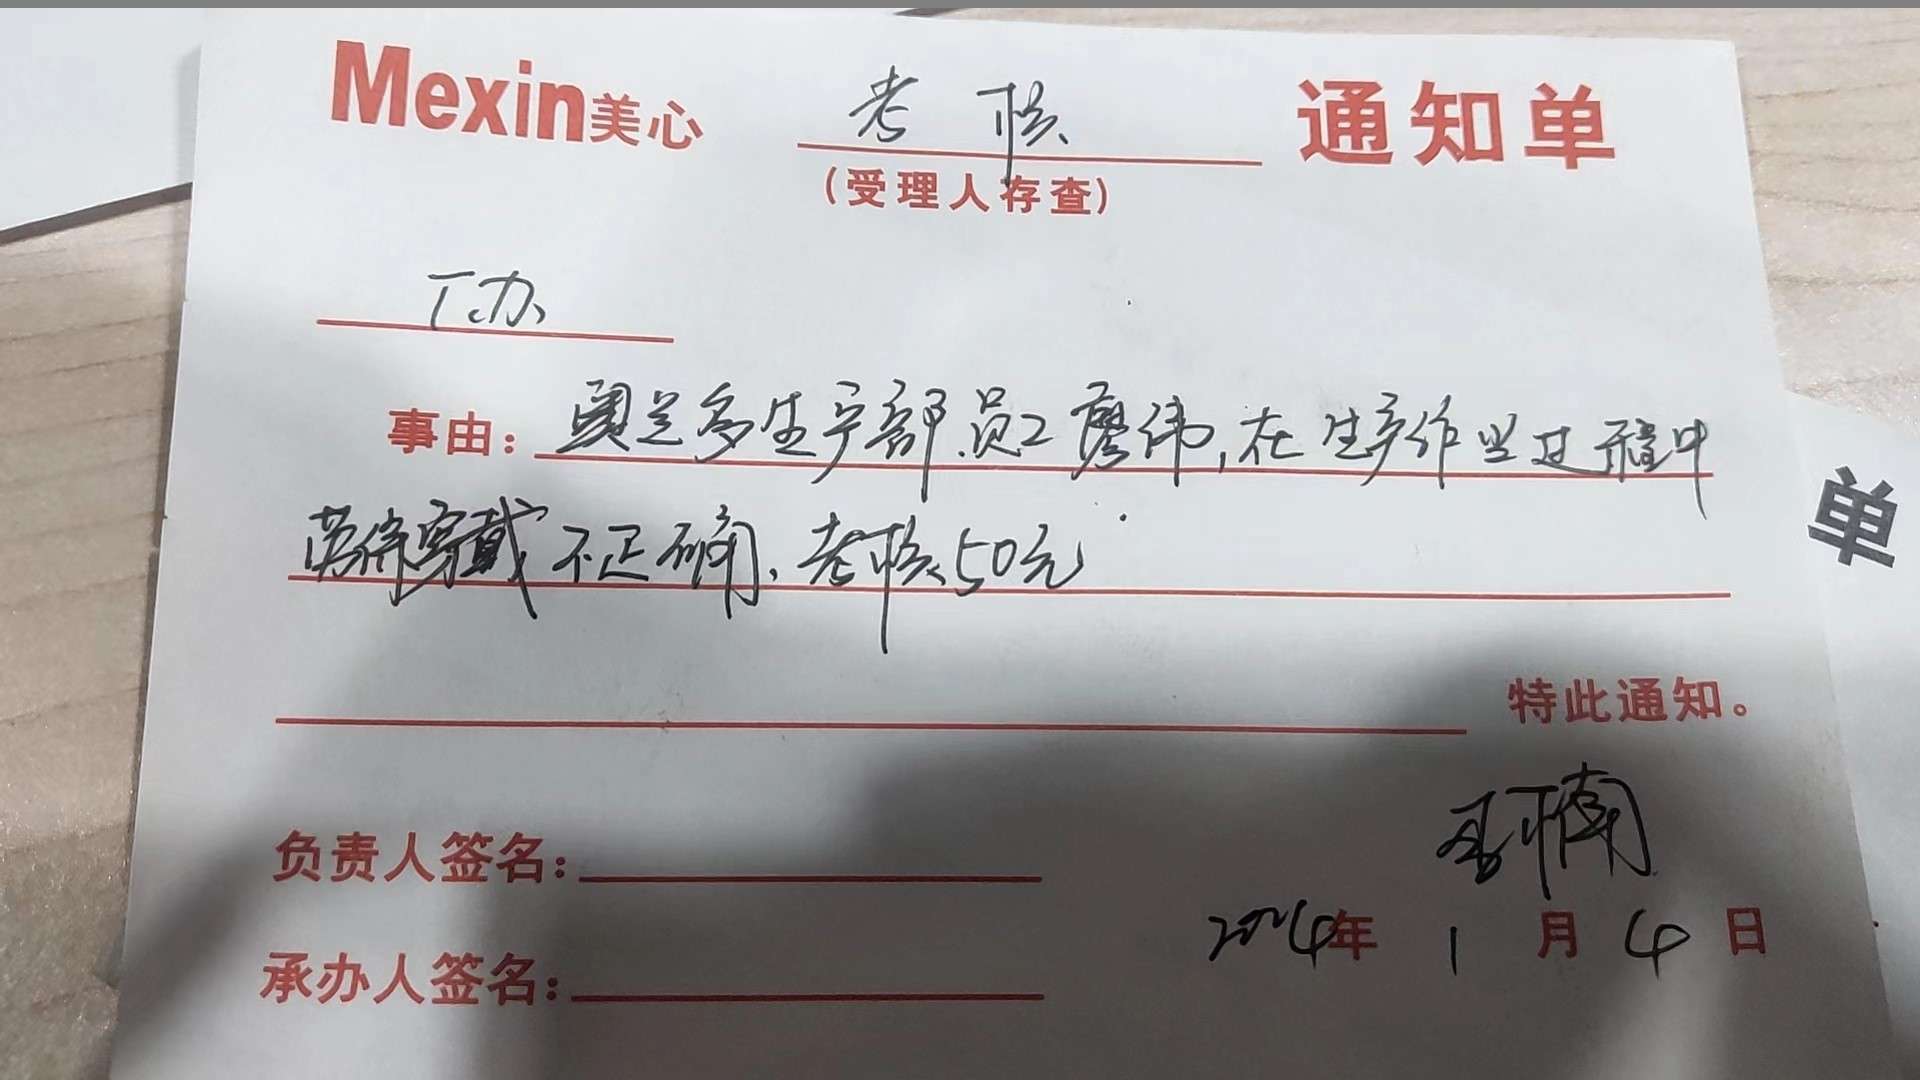 Mexin美心 考核 通知单
(受理人存查)
下办
事由：奥兰多生产部员工廖伟，在生产作业过程中
劳保穿戴不正确，考核50元
特此通知。
负责人签名：
2024年1月4日
承办人签名：
单